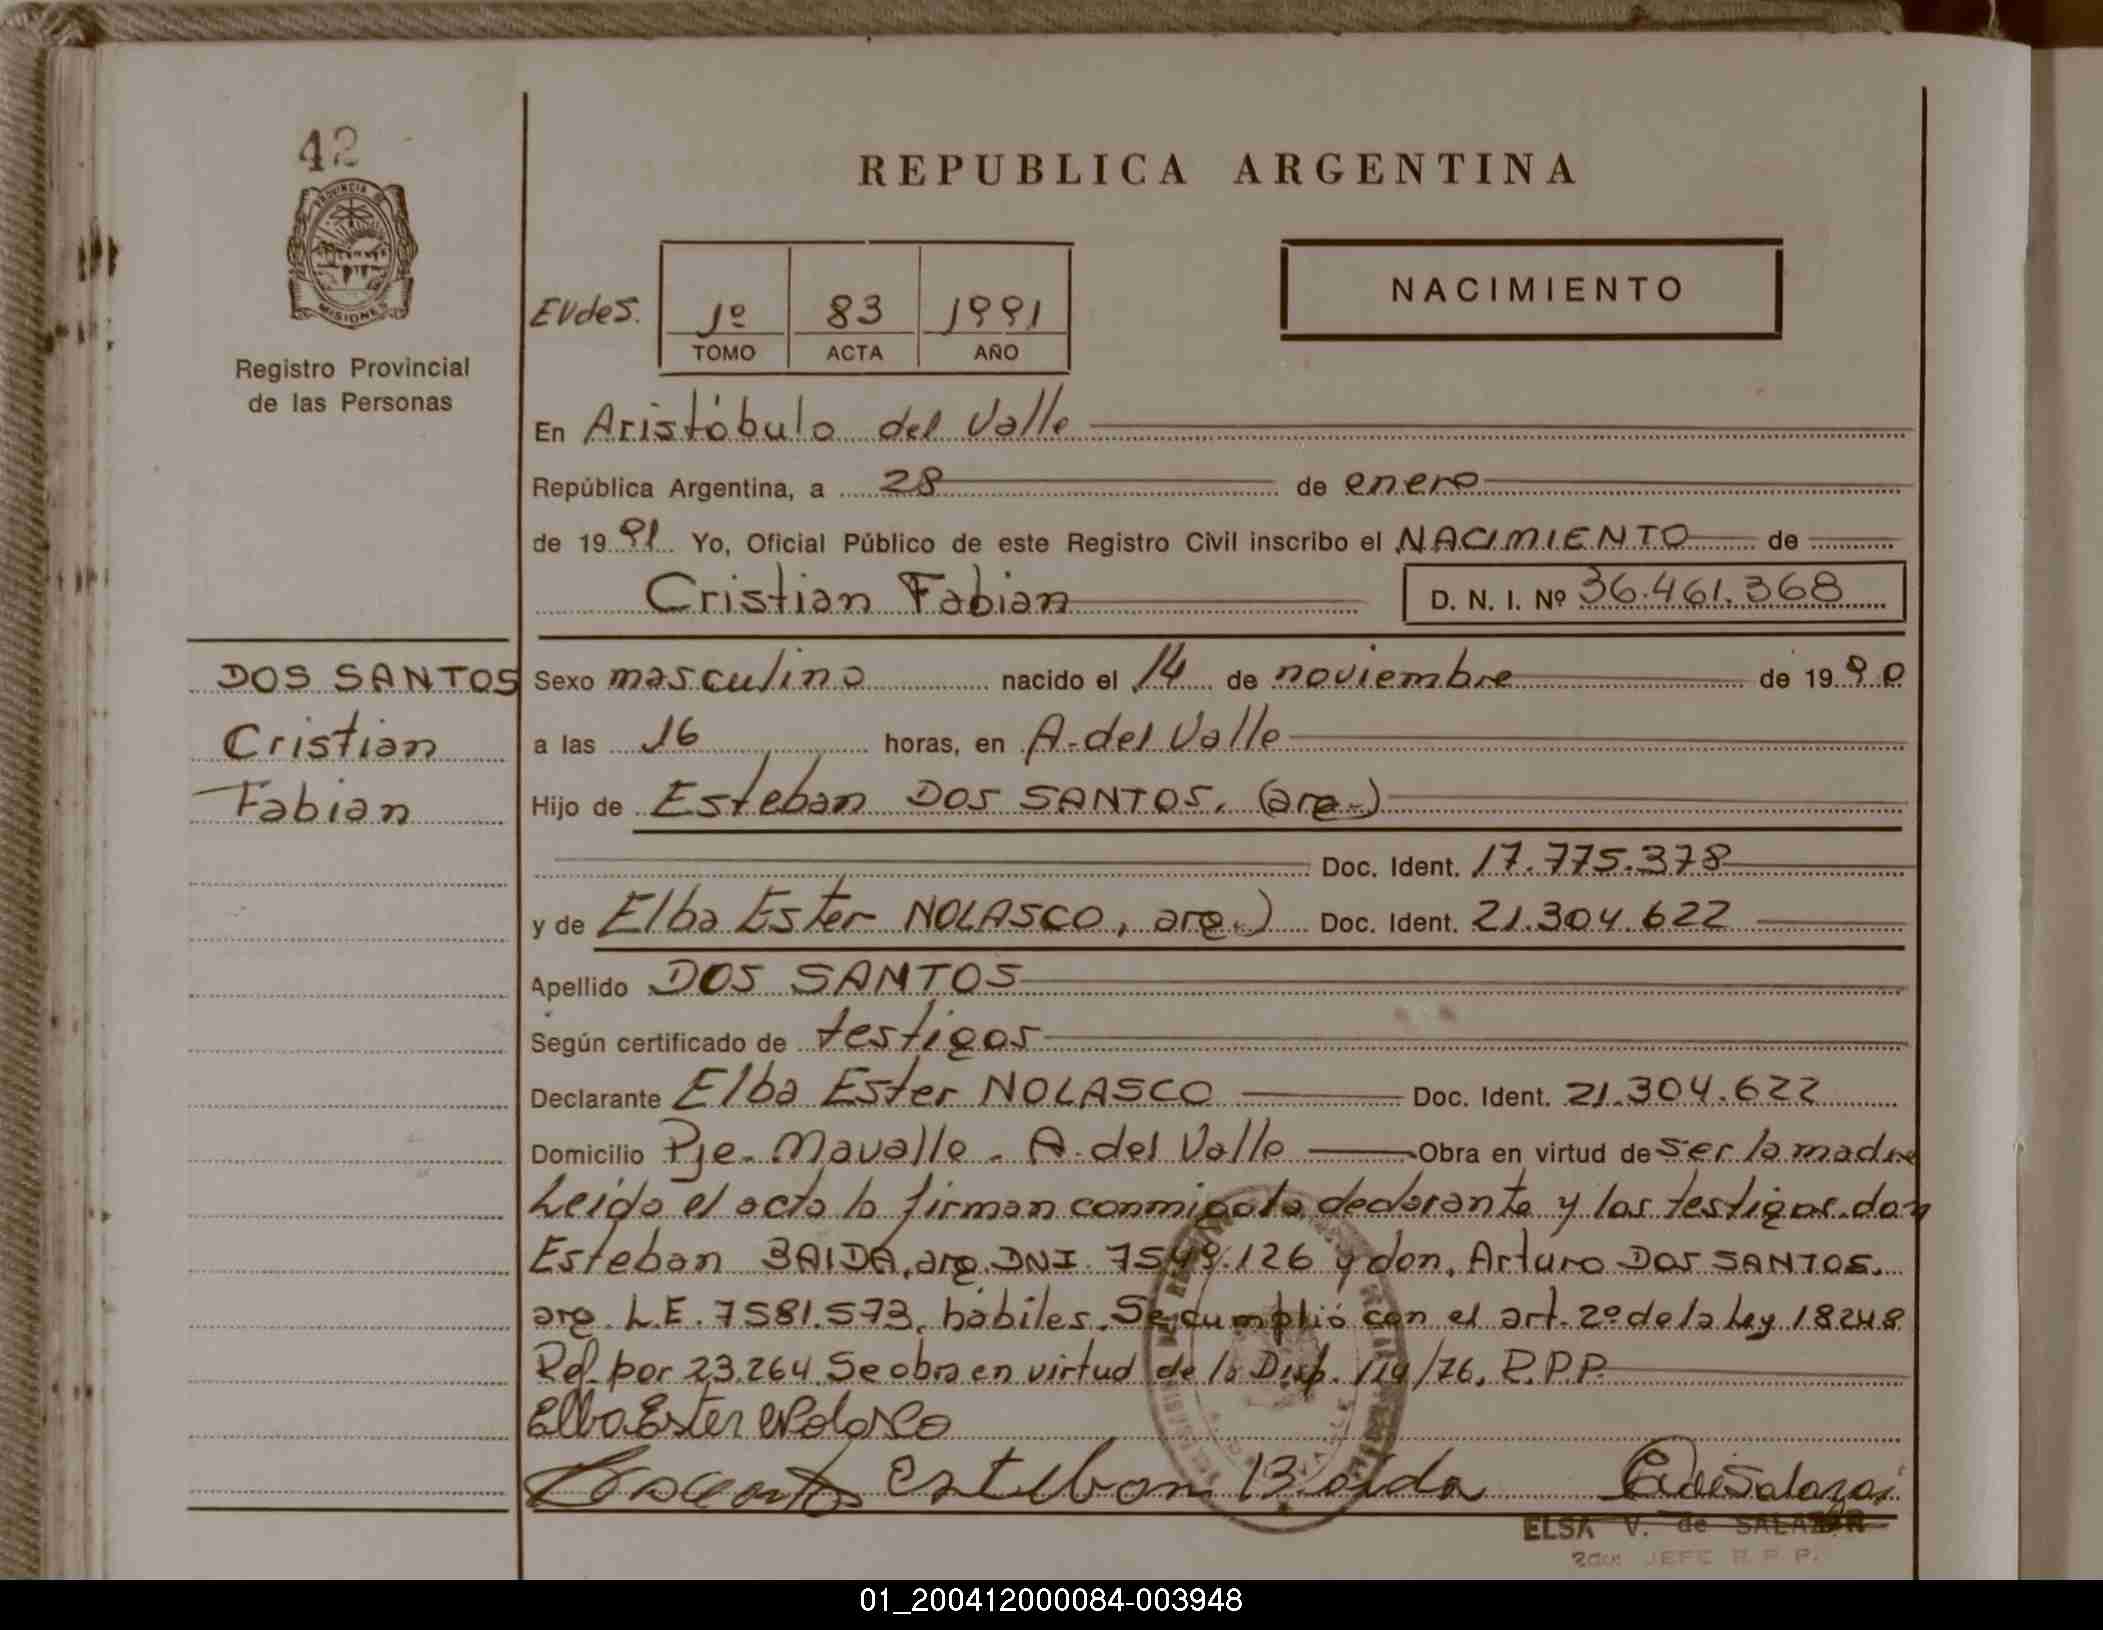 42
PROVINCIA DE
MISIONES
Registro Provincial
de las Personas
REPUBLICA ARGENTINA
NACIMIENTO
EVdeS. 1º 83 1991
TOMO ACTA AÑO
En Aristóbulo del Valle
República Argentina, a 28 de enero
de 1991 Yo, Oficial Público de este Registro Civil inscribo el NACIMIENTO de
Cristian Fabian D. N. I. Nº 36.461.368
DOS SANTOS
Cristian
Fabian
Sexo masculino nacido el 14 de noviembre de 1990
a las 16 horas, en A. del Valle
Hijo de Esteban DOS SANTOS. (arg.)
Doc. Ident. 17.775.378
y de Elba Ester NOLASCO, arg.) Doc. Ident. 21.304.622
Apellido DOS SANTOS
Según certificado de testigos
Declarante Elba Ester NOLASCO Doc. Ident. 21.304.622
Domicilio Pje. Mavalle. A. del Valle Obra en virtud de ser la madre
Leida el acta la firman conmigo la declarante y los testigos. don
Esteban BAIDA, arg. DNI. 7549.126 y don, Arturo DOS SANTOS.
arg. L.E. 7581.573, hábiles. Se cumplió con el art. 2º de la Ley 18248
Ref. por 23.264. Se obra en virtud de la Disp. 119/76. R.P.P.
Elba Ester Nolasco
Esteban Baida EVdeSalazar
ELSA V. de SALAZAR
2do. JEFE R. P. P.
01_200412000084-003948